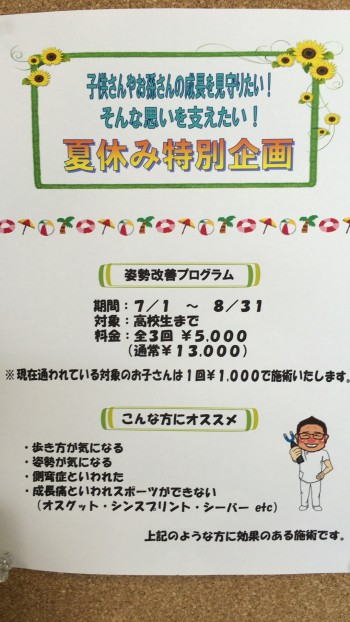 子供さんやお孫さんの成長を見守りたい！
そんな思いを支えたい！
夏休み特別企画
姿勢改善プログラム
期間：７／１　～　８／３１
対象：高校生まで
料金：全３回 ￥５.０００
（通常￥１３.０００）
※現在通われている対象のお子さんは１回￥１.０００で施術いたします。
こんな方にオススメ
・歩き方が気になる
・姿勢が気になる
・側弯症といわれた
・成長痛といわれスポーツができない
（オスグット・シンスプリント・シーバー etc）
上記のような方に効果のある施術です。